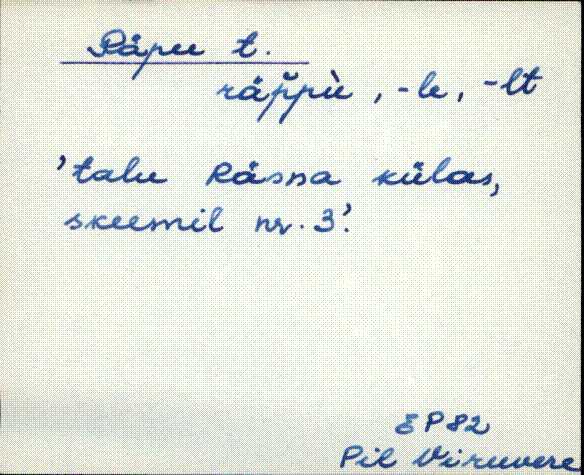 Räpu t.
räp̆pù, -le, -lt
'talu Räsna külas,
skeemil nr. 3'.
EP82
Pil Viruvere